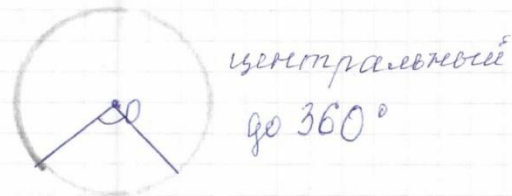 O
центральный
до 360°